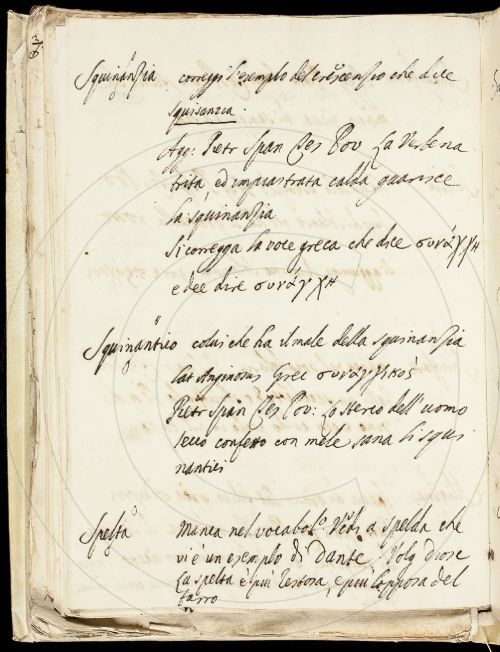 Squinanzia correggi l'esemplo del Crescenzio che dice
squisanzia.
Agg: Pietr Span Tes Pov La Verbena
trita, ed impiastrata calda guarisce
la squinanzia
Si corregga la voce greca che dice συνάγγη
e dee dire συνάγχη
Squinantico colui che ha il male della squinanzia
Lat Anginosus Grec
Pietr Span Tes Pov: Lo sterco dell'uomo
secco confetto con mele sana li squi
nantici
Spelta Manca nel vocabolo. Vedi a spelda che
vi è un esemplo di Dante. Volg Diosc
La spelta è più
farro